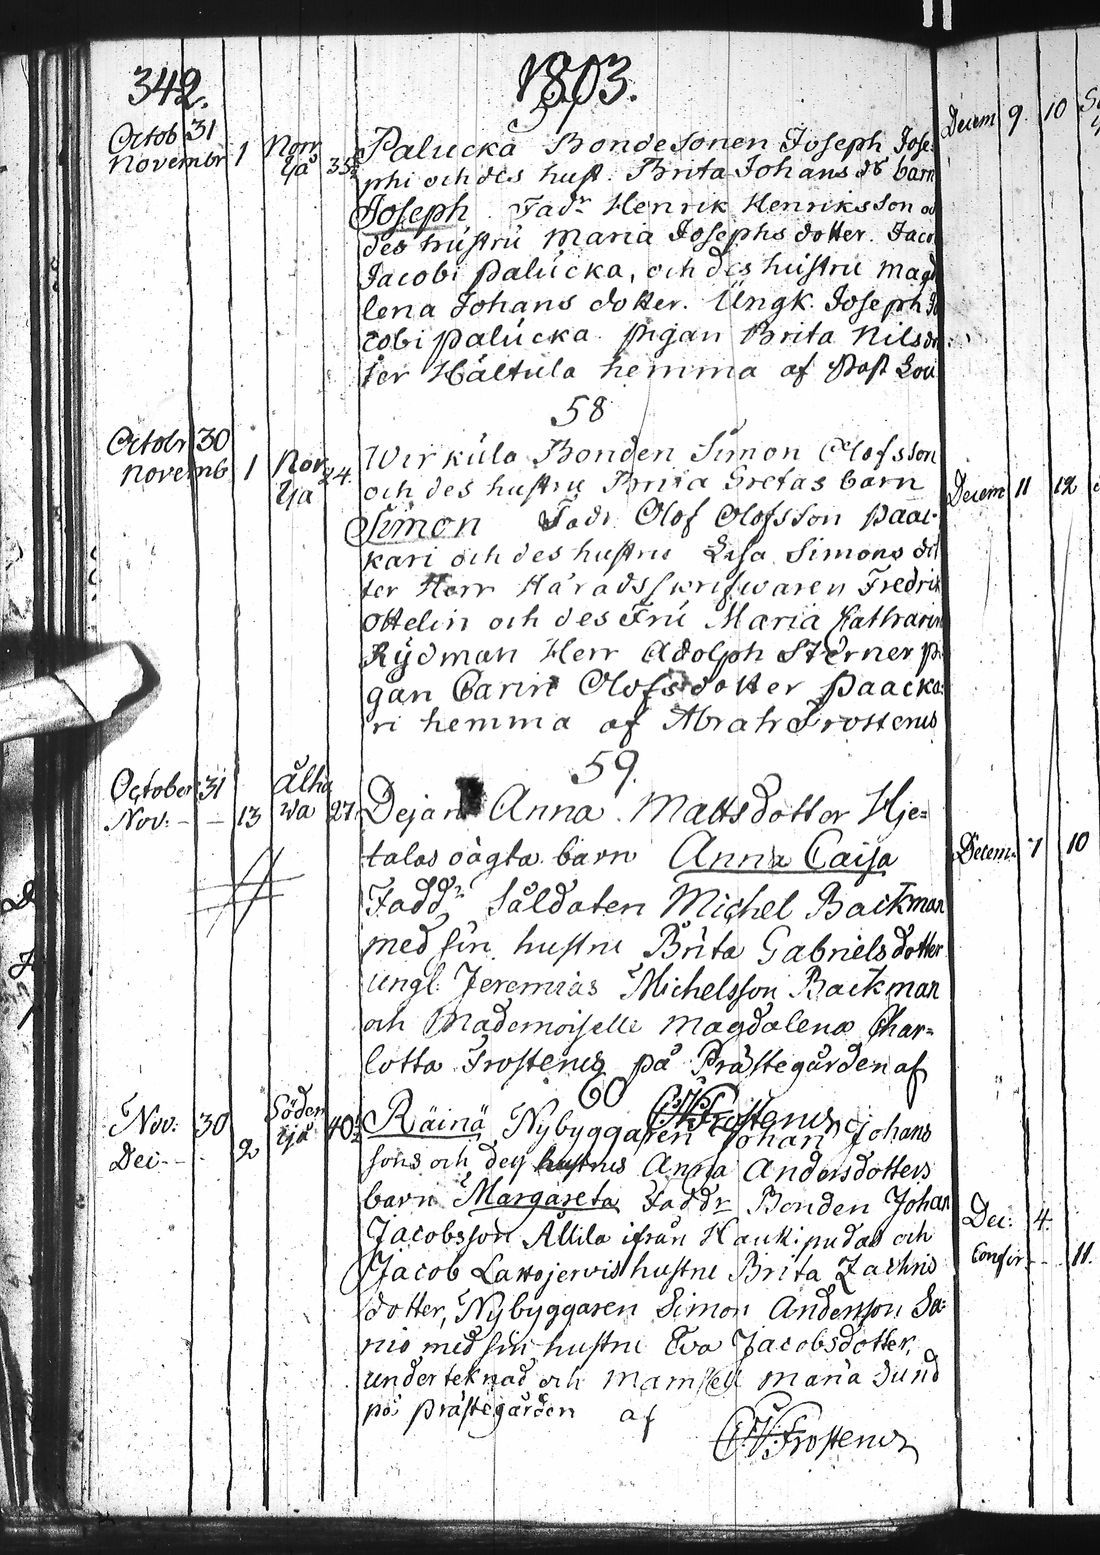 342. 1803.
57
Octob 31
Novembr 1 Norr
Palucka Bondesonen Joseph Jose-
Yå 35½
phi och des hust. Brita Johans dr barn
Joseph Fadr Henrik Henriksson
des hustru Maria Josephs dotter. Jaco
Jacobi Palucka, och des hustru Magd
lena Johans dotter. Ungk. Joseph Ja
cobi Palucka. Pigan Brita Nilsdot
ter Hältula hemma af Past
58
Octobr 30
Wirkula Bonden Simon Olofsson
Novemb 1 Nor 24.
Yja
och des hustru Brita Gretas barn
Simon Fadr. Olof Olofsson Paac-
kari och des hustru Lisa Simons dot
ter Herr Häradsskrifwaren Fredrik
Ottelin och des Fru Maria Katharin
Rydman Herr Adolph Sterner pi-
gan Carin Olofsdotter Paacka-
ri hemma af Abrah Frosterus
59.
October 31 Alha
Nov: - - 13 wa 27.
Dejan Anna Mattsdotter Hje-
talas oägta barn Anna Caisa
Faddr Soldaten Michel Backman
med sin hustru Brita Gabrielsdotter
ungl. Jeremias Michelsson Backman
och Mademoiselle Magdalena Char-
lotta Frosterus på Prästegården af
60 C.W. Frosterus
Nov: 30 Söder
Yjå 40½
Räinä Nybyggaren Johan Johans
Dec- - - 2
sons och des hustrus Anna Andersdotters
barn Margareta Faddr Bonden Johan
Jacobsson Allila ifrån Haukipudas och
Jacob Lattojervis hustru Brita Zachris
dotter, Nybyggaren Simon Andersson Sa-
nio med sin hustru Eva Jacobsdotter,
underteknad och Mamsell Maria Sund
på Prästegården af
C.W. Frosterus
Decem 9. 10
Decem 11 12
Decem. 7 10
Dec: 4.
Confir- - 11.